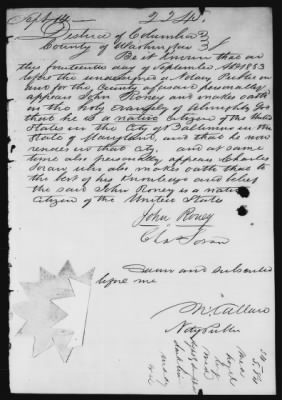 Sept 14 — 2242
District of Columbia
County of Washington
Be it known that on
this fourteenth day of September AD 1853
before the undersigned a Notary Public in
and for the County aforesaid personally
appears John Roney and makes oath
on the Holy Evangely of Almighty God
that he is a native citizen of the United
States in the City of Baltimore in the
State of Maryland, and that he now
resides in that City. and at same
time also personally appears Charles
who makes oath that to
the best of his knowledge and belief
the said John Roney is a native
Citizen of the United States
John Roney
Chs
Sworn and subscribed
before me
Noty Public